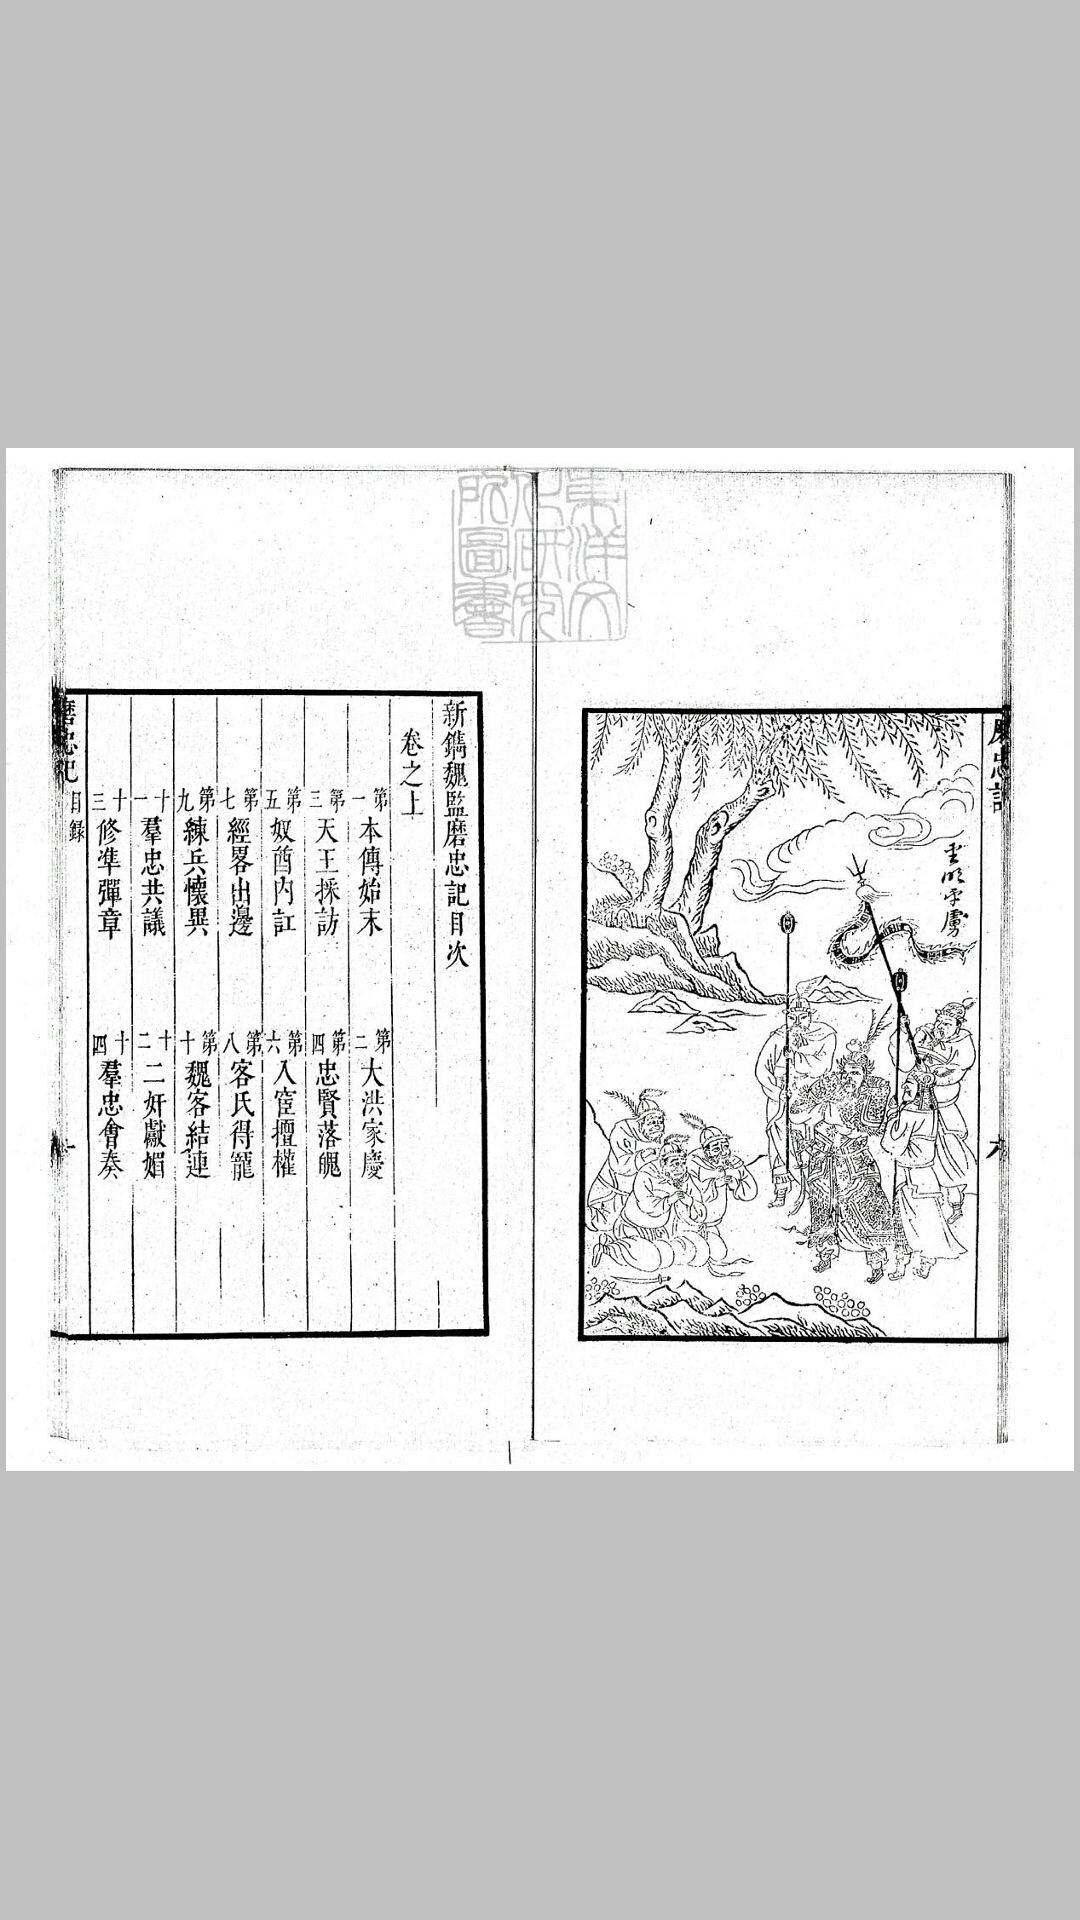 磨忠記
六
圭邜平虜
新鐫魏監磨忠記目次
卷之上
第一 本傳始末 第二 大洪家慶
第三 天王採訪 第四 忠賢落魄
第五 奴酋內訌 第六 入宦擅權
第七 經畧出邊 第八 客氏得寵
第九 練兵懷異 第十 魏客結連
十一 羣忠共議 十二 二奸獻媚
十三 修凖彈章 十四 羣忠會奏
磨忠記 目錄 一
東洋文化研究所圖書